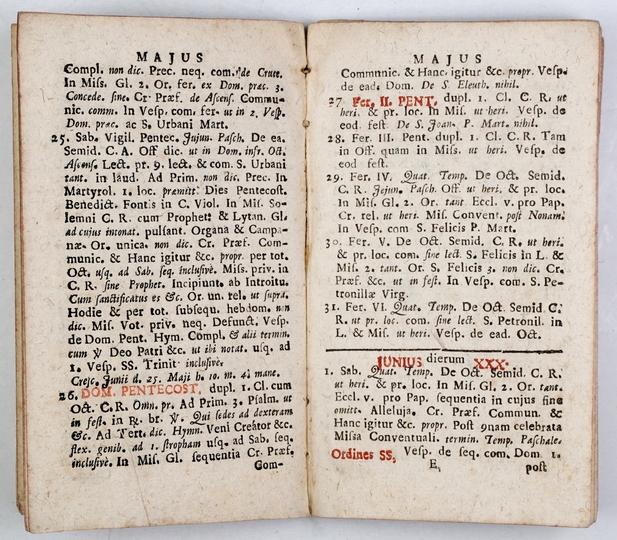 MAJUS
Compl. non dic. Prec. neq. com. de Cruce.
In Miſſ. Gl. 2. Or. fer. ex Dom. præc. 3.
Concede. ſine Cr. Præf. de Aſcenſ. Commu-
nic. comm. In Veſp. com. fer. ut in 2. Veſp.
Dom. præc. ac S. Urbani Mart.
25. Sab. Vigil. Pentec. Jujun. Paſch. De ea.
Semid. C. A. Off dic. ut in Dom. infr. Oct.
Aſcenſ. Lect. pr. 9. lect. & com. S. Urbani
tant. in laud. Ad Prim. non dic. Prec. In
Martyrol. 1. loc. præmitt. Dies Pentecoſt.
Benedict. Fontis in C. Viol. In Miſſ. So-
lemni C. R. cum Prophet. & Lytan. Gl.
ad cujus intonat. pulſant. Organa & Campa-
næ. Or. unica. non dic. Cr. Præf. Com-
munic. & Hanc igitur &c. propr. per tot.
Oct. uſq. ad Sab. ſeq. incluſivè. Miſſ. priv. in
C. R. ſine Prophet. Incipiunt. ab Introitu.
Cum ſanctificatus es &c. Or. un. rel. ut ſupra.
Hodie & per tot. ſubſequ. hebdom. non
dic. Miſſ. Vot. priv. neq. Defunct. Veſp.
de Dom. Pent. Hym. Compl. & alii termin.
cum ℣ Deo Patri &c. ut ibi notat. uſq. ad
1. Veſp. SS. Trinit. incluſivè.
Creſc. Junii d. 25. Maji h. 10. m. 42 mane.
26. DOM. PENTECOST. dupl. 1. Cl. cum
Oct. C. R. Omn. pr. Ad Prim. 3. Pſalm. ut
in feſt. in ℞. br. ℣. Qui ſedes ad dexteram
&c. Ad Tert. dic. Hymn. Veni Creator &c.
flex. genib. ad 1. ſtropham uſq. ad Sab. ſeq.
incluſivè. In Miſſ. Gl. ſequentia Cr. Præf.
Com-
MAJUS
Communic. & Hanc igitur &c. propr. Veſp.
de ead. Dom. De S. Eleuth. nihil.
27. Fer. II. PENT. dupl. 1. Cl. C. R. ut
heri. & pr. loc. In Miſſ. ut heri. Veſp. de
eod. feſt. De S. Joan. P. Mart. nihil.
28. Fer. III. Pent. dupl. 1. Cl. C. R. Tam
in Off. quam in Miſſ. ut heri. Veſp. de
eod feſt.
29. Fer. IV. Quat. Temp. De Oct. Semid.
C. R. Jejun. Paſch. Off. ut heri. & pr. loc.
In Miſſ. Gl. 2. Or. tant. Eccl. v. pro Pap.
Cr. rel. ut heri. Miſſ. Convent. poſt Nonam.
In Veſp. com S. Felicis P. Mart.
30. Fer. V. De Oct. Semid. C. R. ut heri.
& pr. loc. com. ſine lect. S. Felicis in L. &
Miſſ. 2. tant. Or. S. Felicis 3. non dic. Cr.
Præf. &c. ut in feſt. In Veſp. com. S. Pe-
tronillæ Virg.
31. Fer. VI. Quat. Temp. De Oct. Semid C.
R. ut pr. loc. com. ſine lect. S. Petronil. in
L. & Miſſ. ut heri. Veſp. de ead. Oct.
JUNIUS dierum XXX.
1. Sab. Quat. Temp. De Oct. Semid. C. R.
ut heri. & pr. loc. In Miſ. Gl. 2. Or. tant.
Eccl. v. pro Pap. ſequentia in cujus fine
omitt. Alleluja. Cr. Præf. Commun. &
Hanc igitur &c. propr. Poſt 9nam celebrata
Miſſa Conventuali. termin. Temp. Paſchale.
Ordines SS. Veſp. de ſeq. com. Dom 1.
E, poſt